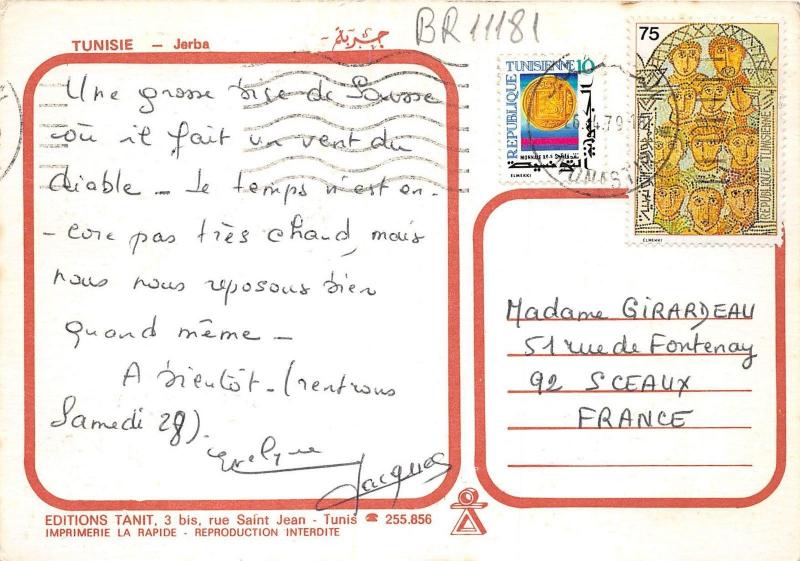 BR11181
TUNISIE - Jerba
جربة
Une grosse bise de Sousse
où il fait un vent du
diable - le temps n'est en-
-core pas très chaud, mais
nous nous reposons bien
quand même -
A bientôt - (rentrons
Samedi 28).
Evelyne
Jacques
75
REPUBLIQUE TUNISIENNE
ELMEKKI
REPUBLIQUE TUNISIENNE 10
الجمهورية التونسية
ELMEKKI
Madame GIRARDEAU
51 rue de Fontenay
92 SCEAUX
FRANCE
EDITIONS TANIT, 3 bis, rue Saint Jean - Tunis ☎ 255.856
IMPRIMERIE LA RAPIDE - REPRODUCTION INTERDITE